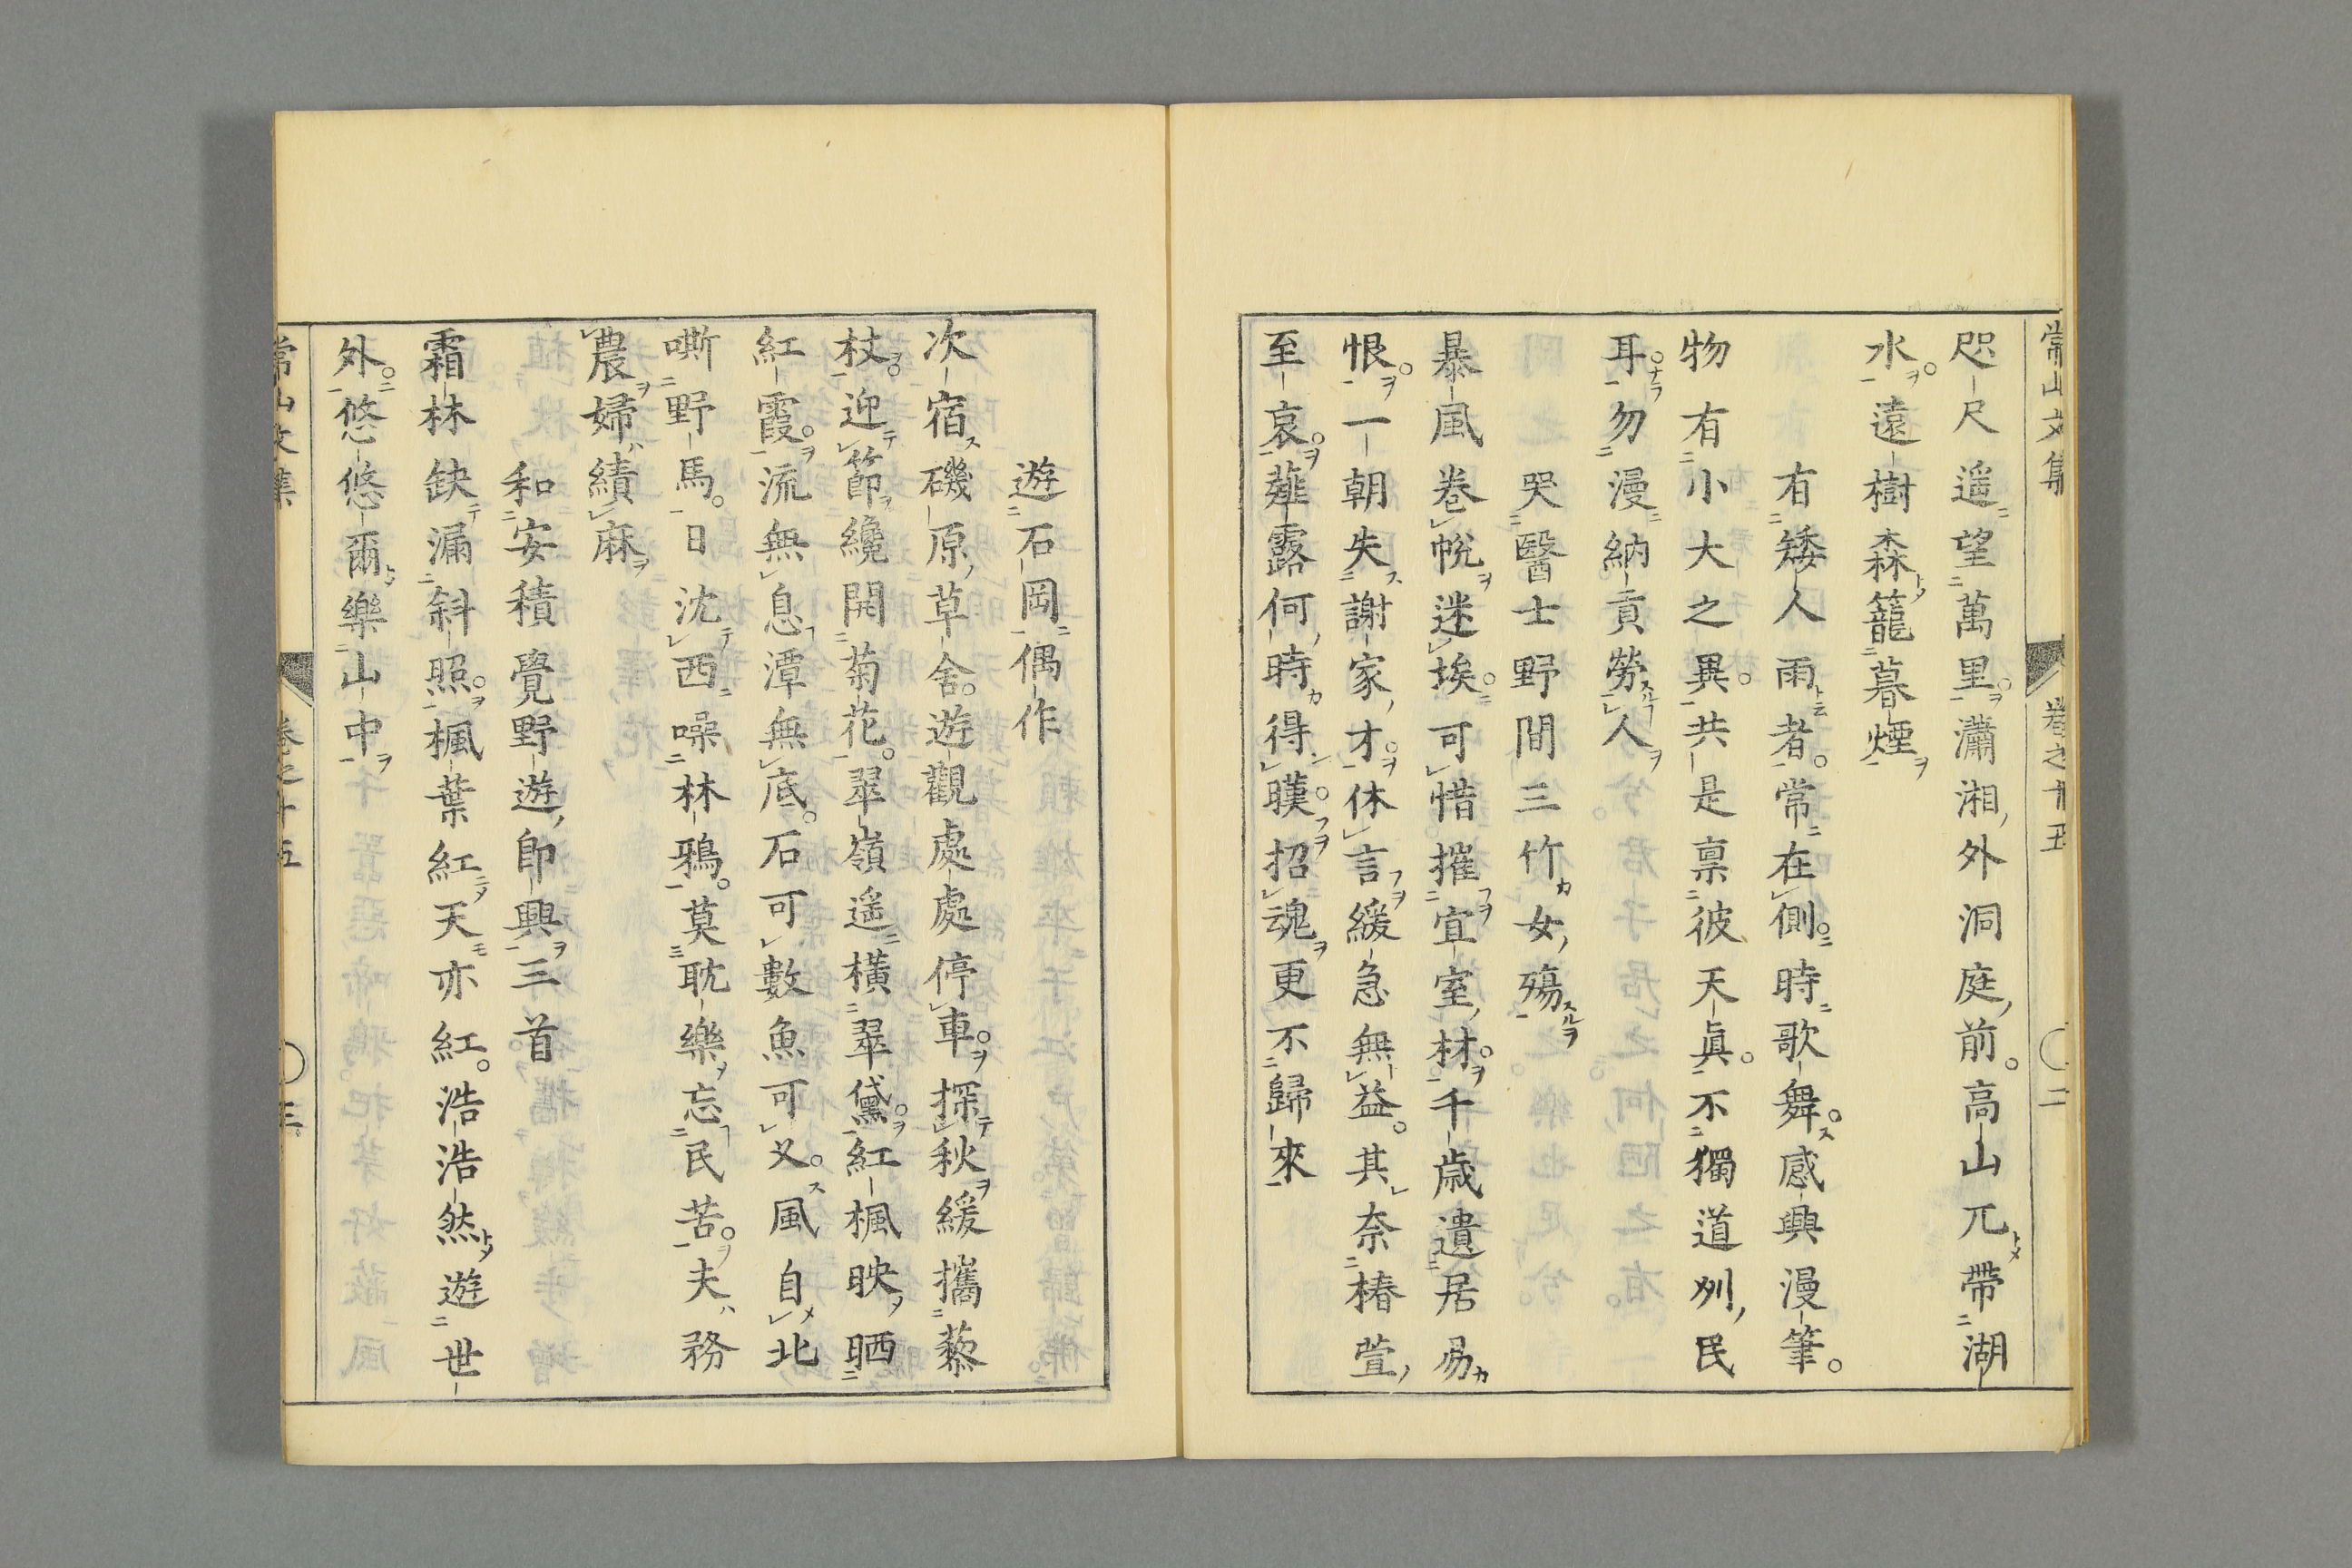 常山文集 卷之十五 〇二
咫尺遥望萬里瀟湘外洞庭前高山兀帶湖
水遠樹森籠暮煙
有矮人雨者常在側時歌舞感興漫筆
物有小大之異共是稟彼天眞不獨道州民
耳勿漫納貢勞人
哭醫士野間三竹女殤
暴風卷帨迷埃可惜摧宜室材千歳遺居易
恨一朝失謝家才休言緩急無益其奈椿萱
至哀薤露何時得暵招魂更不歸來
遊石岡偶作
次宿磯原草舍遊觀處處停車探秋緩攜藜
杖迎節纔開菊花翠嶺遥橫翠黛紅楓映晒
紅霞流無息潭無底石可數魚可义風自北
嘶野馬日沈西噪林鴉莫耽樂忘民苦夫務
農婦績麻
和安積覺野遊即興三首
霜林缺漏斜照楓葉紅天亦紅浩浩然遊世
外悠悠爾樂山中
常山文集 卷之十五 〇三